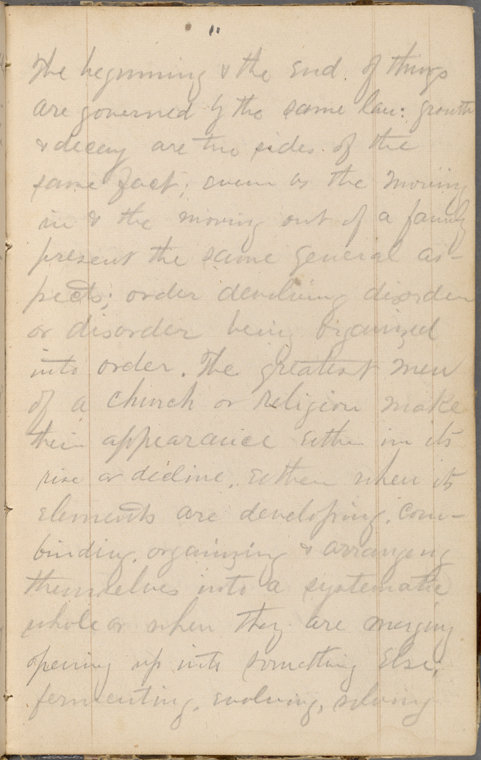 The beginning & the end of things
are governed by the same law: growth
& decay are two sides of the
same fact; even as the moving
in & the moving out of a family
present the same general as-
pects; order devolving disorder
or disorder being organized
into order. The greatest men
of a church or religion make
their appearance either in its
rise or decline, either when its
elements are developing, com-
binding, organizing & arranging
themselves into a systematic
whole or when they are merging
opening up into something else;
fermenting, evolving,